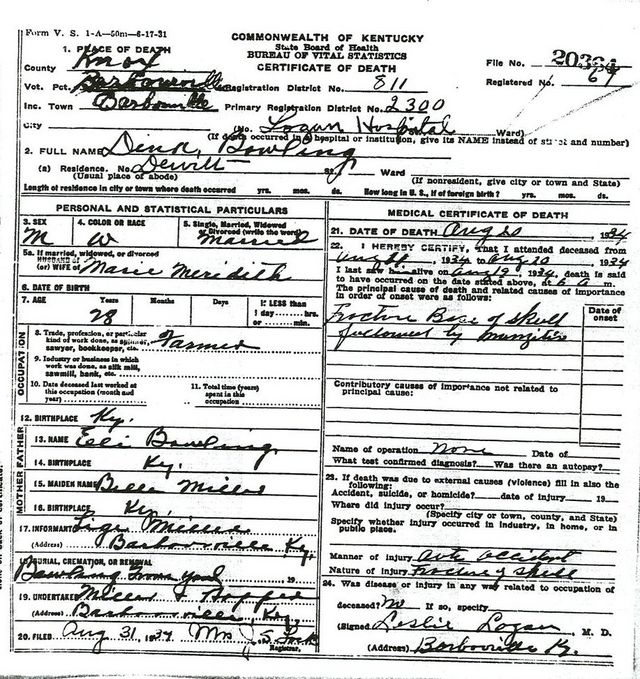 Form V. S. 1-A—50m—6-17-31
COMMONWEALTH OF KENTUCKY
State Board of Health
BUREAU OF VITAL STATISTICS
CERTIFICATE OF DEATH
1. PLACE OF DEATH
County Knox
File No.
Registered No. 67
Vot. Pct. Barbourville Registration District No. 811
Inc. Town Barbourville Primary Registration District No. 2300
City No. Logan Hospital Ward)
(If death occurred in a hospital or institution, give its NAME instead of street and number)
2. FULL NAME Bowling
(a) Residence. No. Dewitt St. Ward
(Usual place of abode) (If nonresident, give city or town and State)
Length of residence in city or town where death occurred yrs. mos. ds. How long in U. S., if of foreign birth? yrs. mos. ds.
PERSONAL AND STATISTICAL PARTICULARS
3. SEX M
4. COLOR OR RACE W
5. Single, Married, Widowed or Divorced (write the word) Married
5a. If married, widowed, or divorced
HUSBAND of
(or) WIFE of Marie Meridith
6. DATE OF BIRTH
7. AGE Years Months Days If LESS than
28 1 day hrs.
or min.
OCCUPATION
8. Trade, profession, or particular
kind of work done, as spinner, Farmer
sawyer, bookkeeper, etc.
9. Industry or business in which
work was done, as silk mill,
sawmill, bank, etc.
10. Date deceased last worked at
this occupation (month and
year)
11. Total time (years)
spent in this
occupation
12. BIRTHPLACE Ky.
FATHER
13. NAME Bowling
14. BIRTHPLACE Ky.
MOTHER
15. MAIDEN NAME Mills
16. BIRTHPLACE Ky.
17. INFORMANT
(Address) Barbourville Ky.
18. BURIAL, CREMATION, OR REMOVAL
Bowling Grave yard 19
19. UNDERTAKER
(Address) Barbourville, Ky
20. FILED Aug 31, 1934 Mrs
Registrar.
MEDICAL CERTIFICATE OF DEATH
21. DATE OF DEATH Aug 20 1934
22. I HEREBY CERTIFY, That I attended deceased from
1934 to Aug 20 1934
I last saw h alive on Aug 19, 1934, death is said
to have occurred on the date stated above, at 6 A m.
The principal cause of death and related causes of importance
in order of onset were as follows:
Date of
onset
Fracture Base of Skull
followed by
Contributory causes of importance not related to
principal cause:
Name of operation none Date of
What test confirmed diagnosis? Was there an autopsy?
23. If death was due to external causes (violence) fill in also the
following:
Accident, suicide, or homicide? date of injury 19
Where did injury occur?
(Specify city or town, county, and State)
Specify whether injury occurred in industry, in home, or in
public place.
Manner of injury Auto accident
Nature of injury fracture of skull
24. Was disease or injury in any way related to occupation of
deceased? No If so, specify
(Signed Leslie Logan M. D.
(Address) Barbourville Ky.